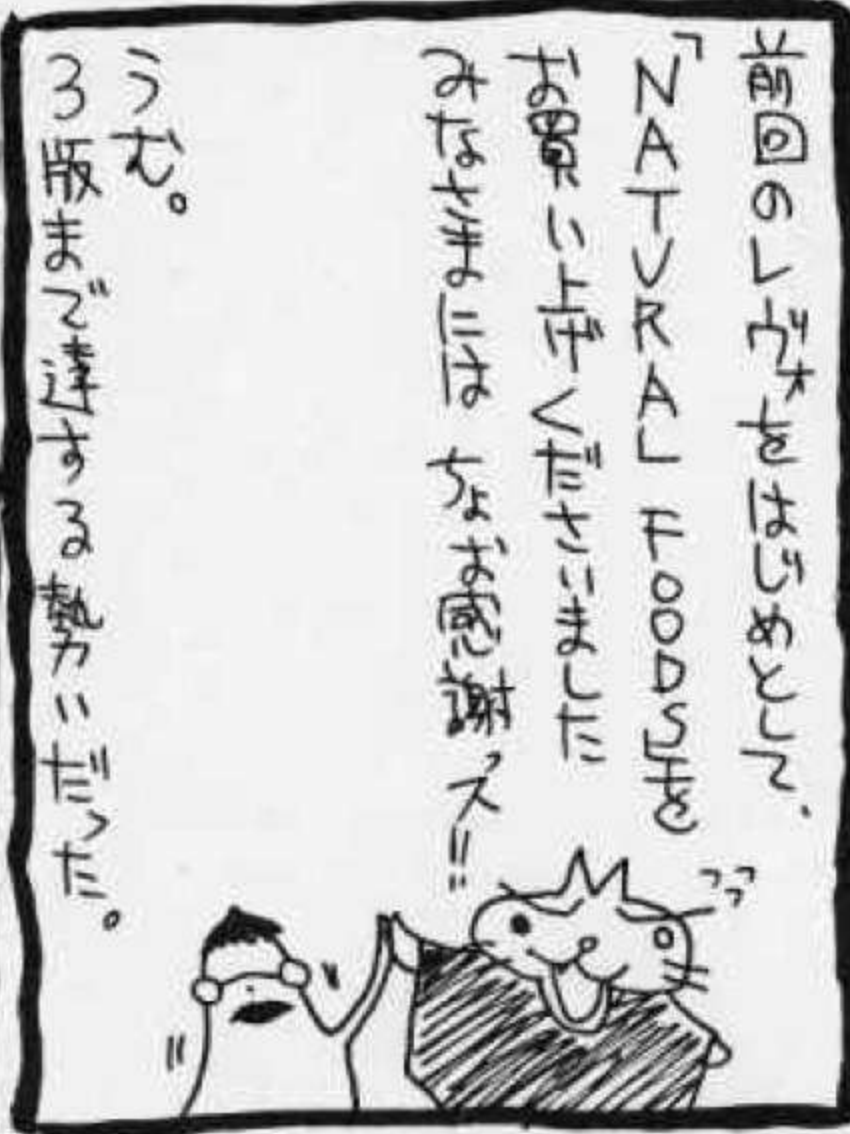 前回のレヴォをはじめとして、
「NATURAL FOODS」を
お買い上げくださいました
みなさまには ちょお感謝ッス!!
うむ。
3版まで達する勢いだった。